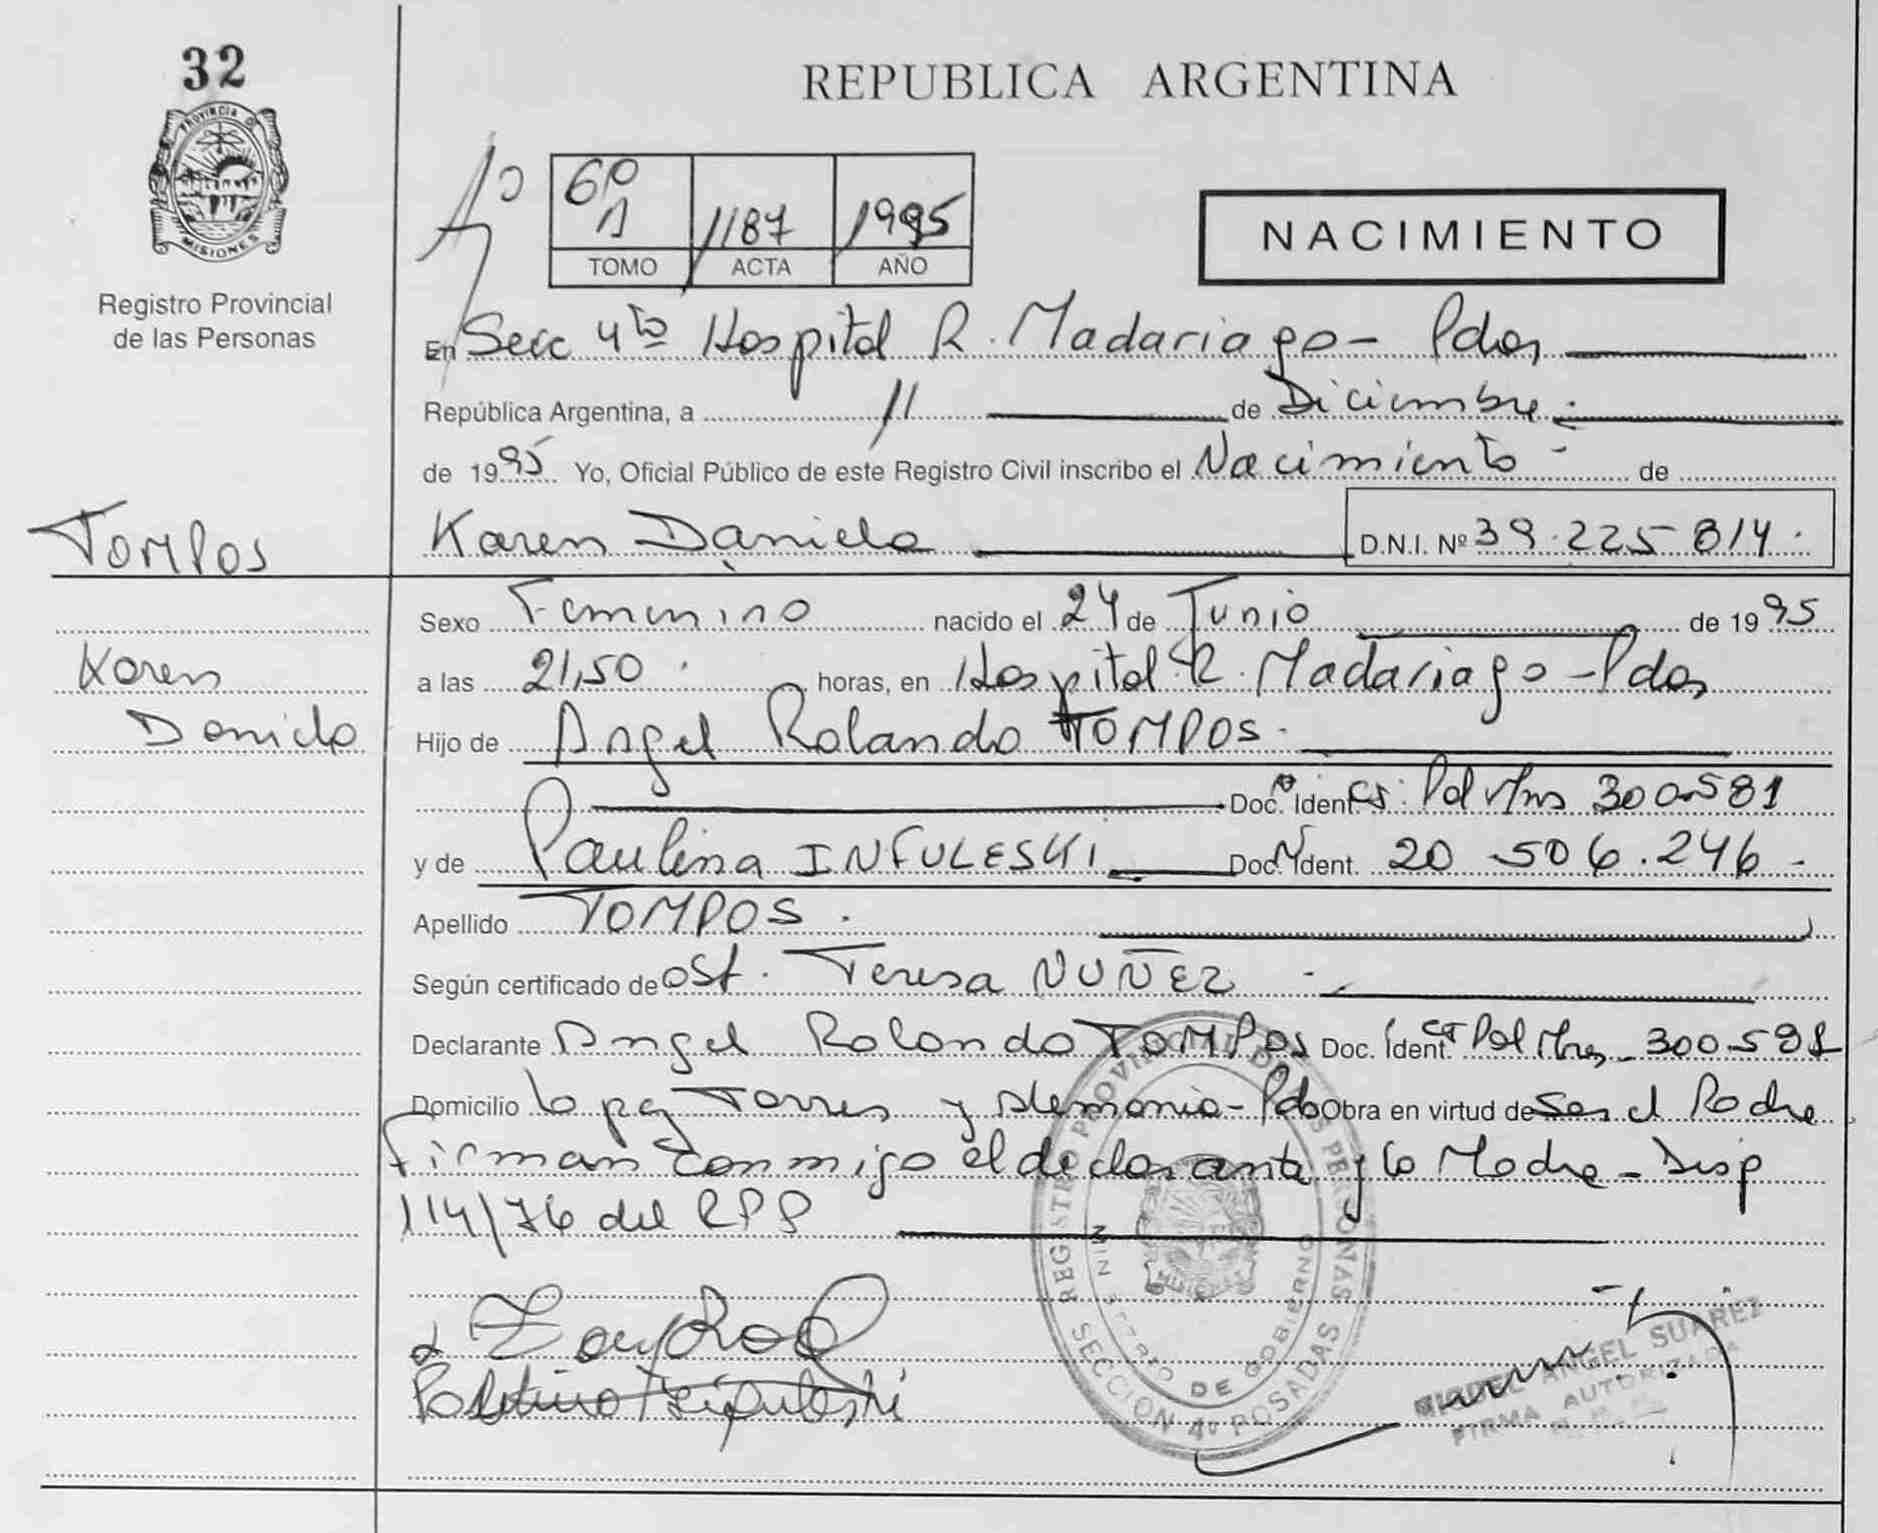 32
PROVINCIA DE
MISIONES
Registro Provincial
de las Personas
REPUBLICA ARGENTINA
6º
A 1187 1995
TOMO ACTA AÑO
NACIMIENTO
En Secc 4ta Hospital R. Madariaga - Pdas
República Argentina, a 11 de Diciembre
de 1995 Yo, Oficial Público de este Registro Civil inscribo el Nacimiento de
TOMPOS Karen Daniela D.N.I. Nº 39.225.814.
Sexo Femenino nacido el 24 de Junio de 1995
Karen a las 21,50 horas, en Hospital R. Madariaga - Pdas
Daniela Hijo de Angel Rolando TOMPOS.
Doc. Ident. CI: Pol Mns 300.581
y de Paulina INFULESKI Doc. Ident. 20.506.246 -
Apellido TOMPOS.
Según certificado de Ost. Teresa NUÑEZ -
Declarante Angel Rolando TOMPOS Doc. Ident. CI Pol Mnes 300581
Domicilio Lopez Torres y Alemania - Pdas Obra en virtud de Ser el Padre
Firman conmigo el declarante y la Madre - Disp
114/76 del RPP
REGISTRO PROVINCIAL DE LAS PERSONAS
MINISTERIO DE GOBIERNO
MISIONES
SECCION 4º POSADAS
MIGUEL ANGEL SUAREZ
FIRMA AUTORIZADA